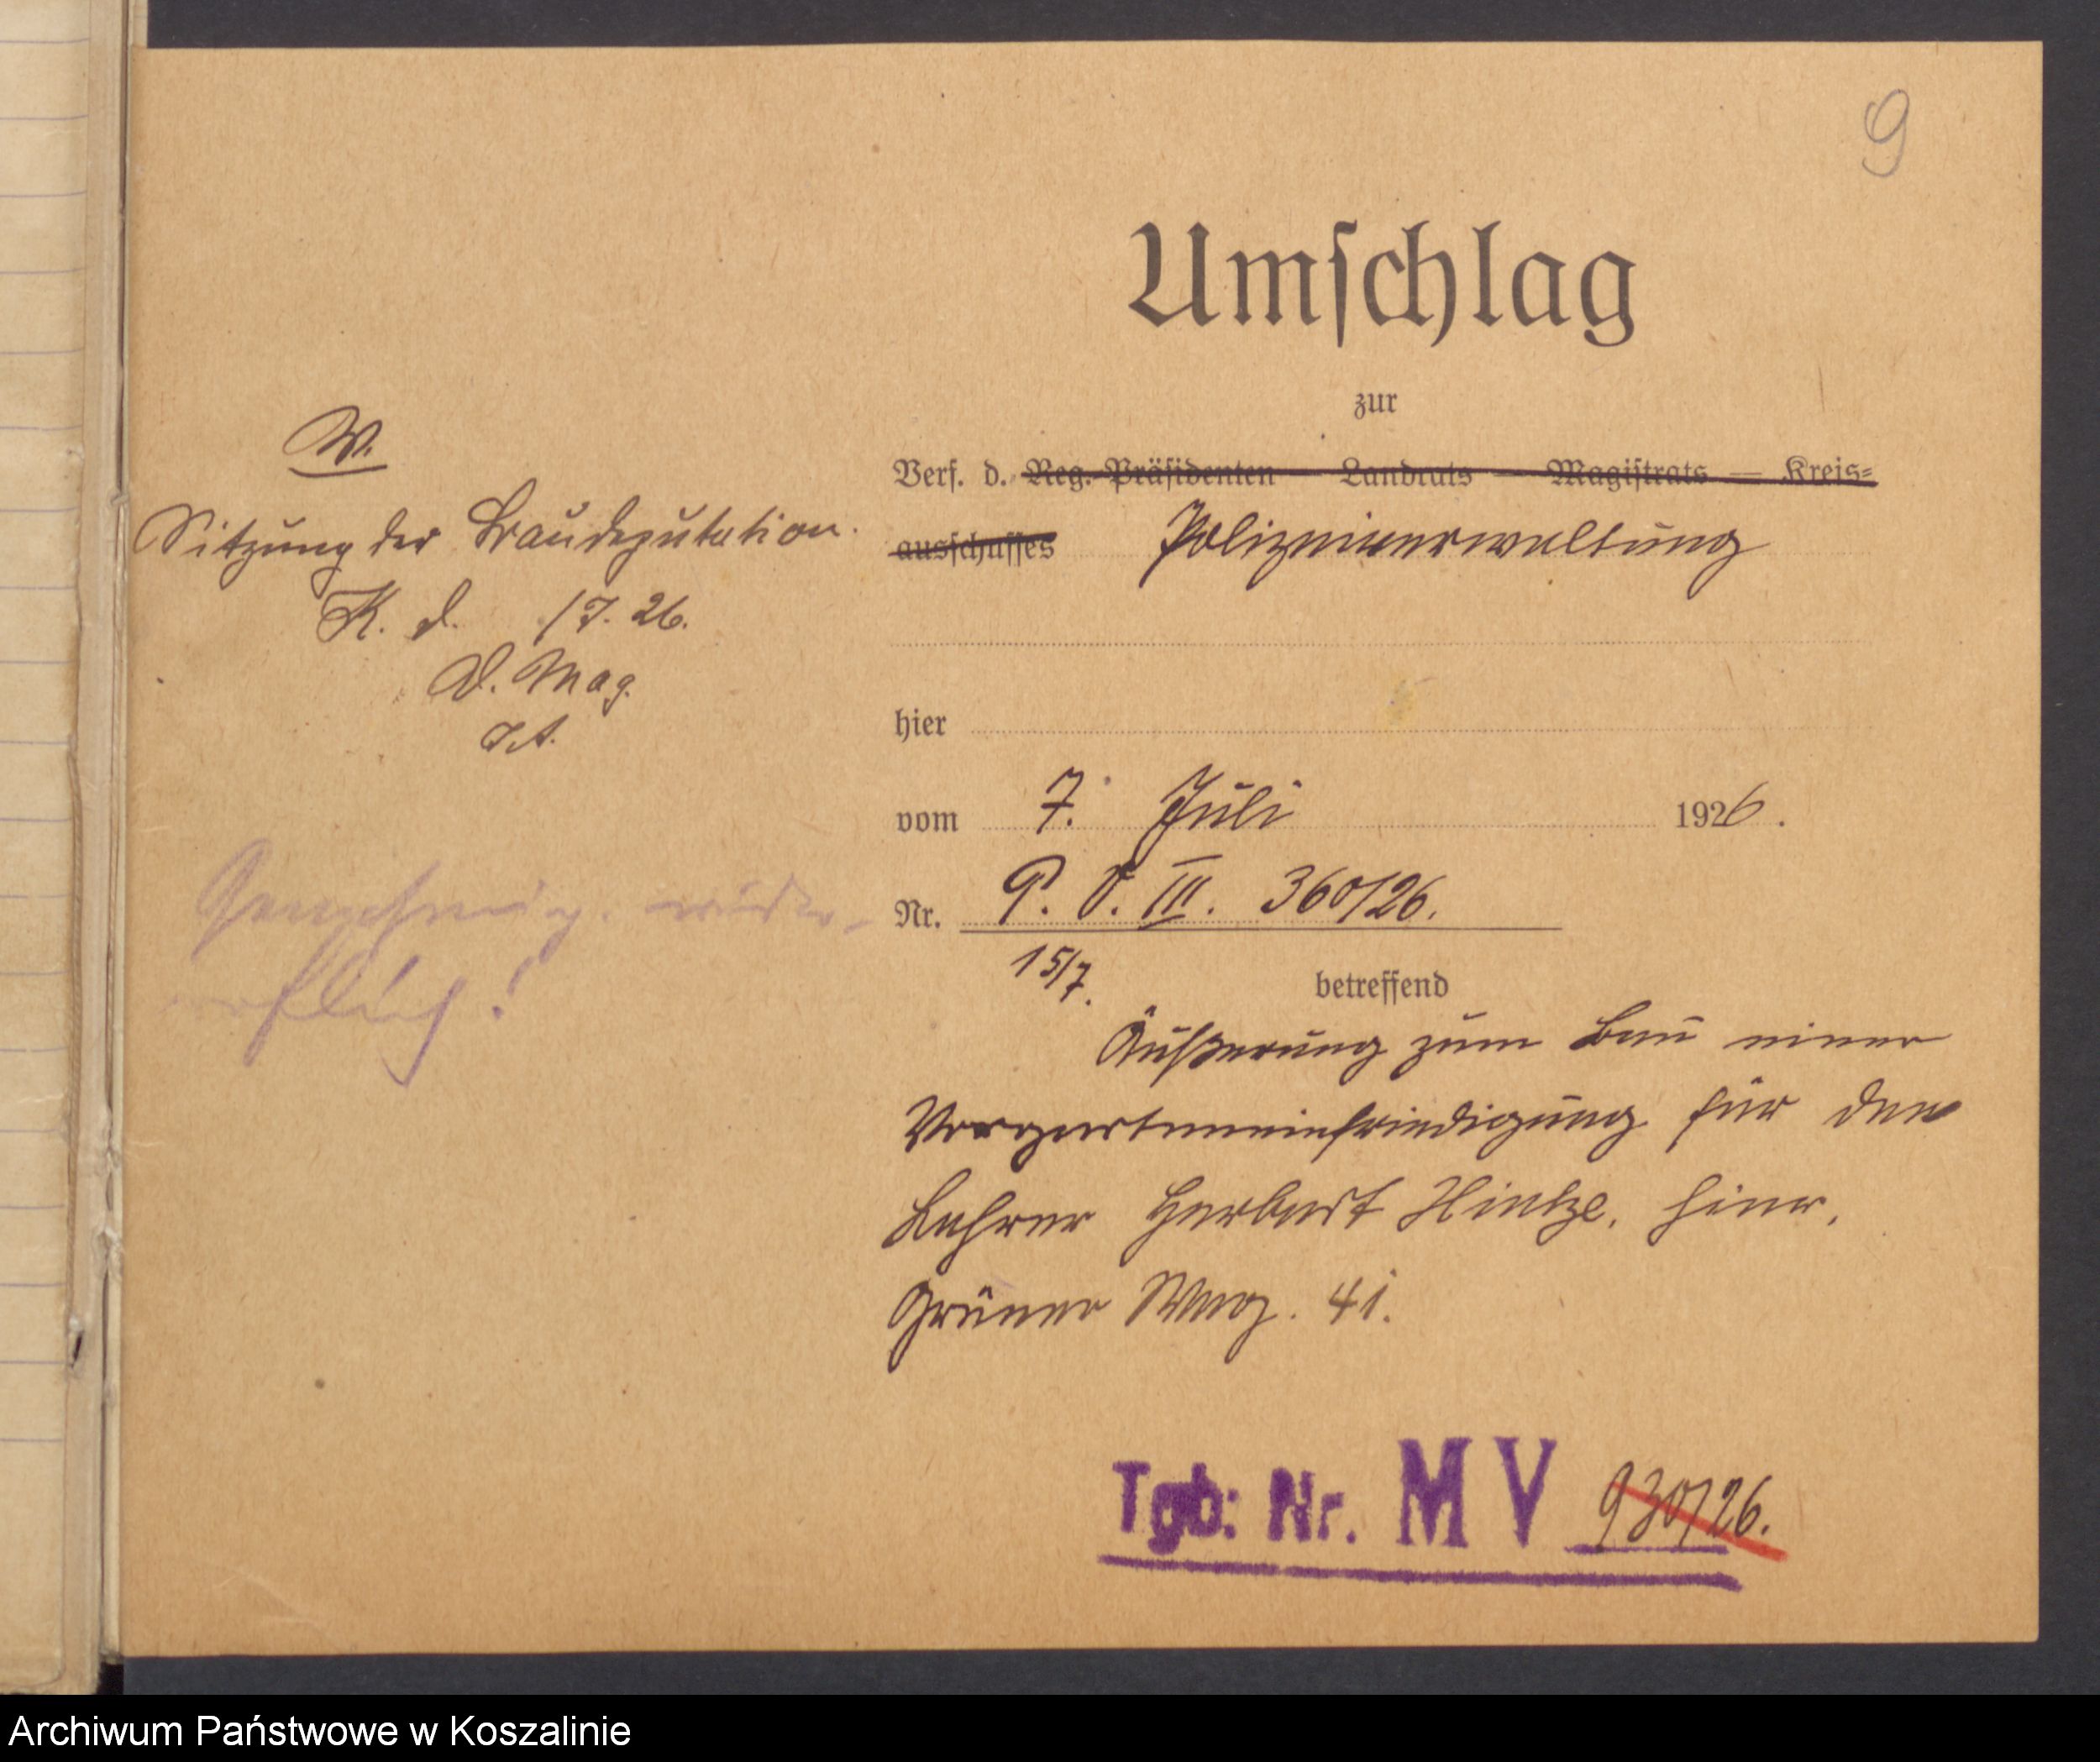 9
Umschlag
zur
Verf. d. Reg.-Präsidenten — Landrats — Magistrats — Kreis-
ausschusses Polizeiverwaltung
hier
vom 7. Juli 1926.
Nr. P. V. III. 360/26.
15/7.
betreffend
Äußerung zum Bau einer
Vorgarteneinfriedigung für den
Lehrer Herbert Hintze, hier,
Grüner Weg. 41.
Tgb: Nr. M V 930/26.
W.
Sitzung der Baudeputation.
K. d. /7. 26.
D. Mag.
I.A.
Genehmig. wider-
ruflich!
Archiwum Państwowe w Koszalinie